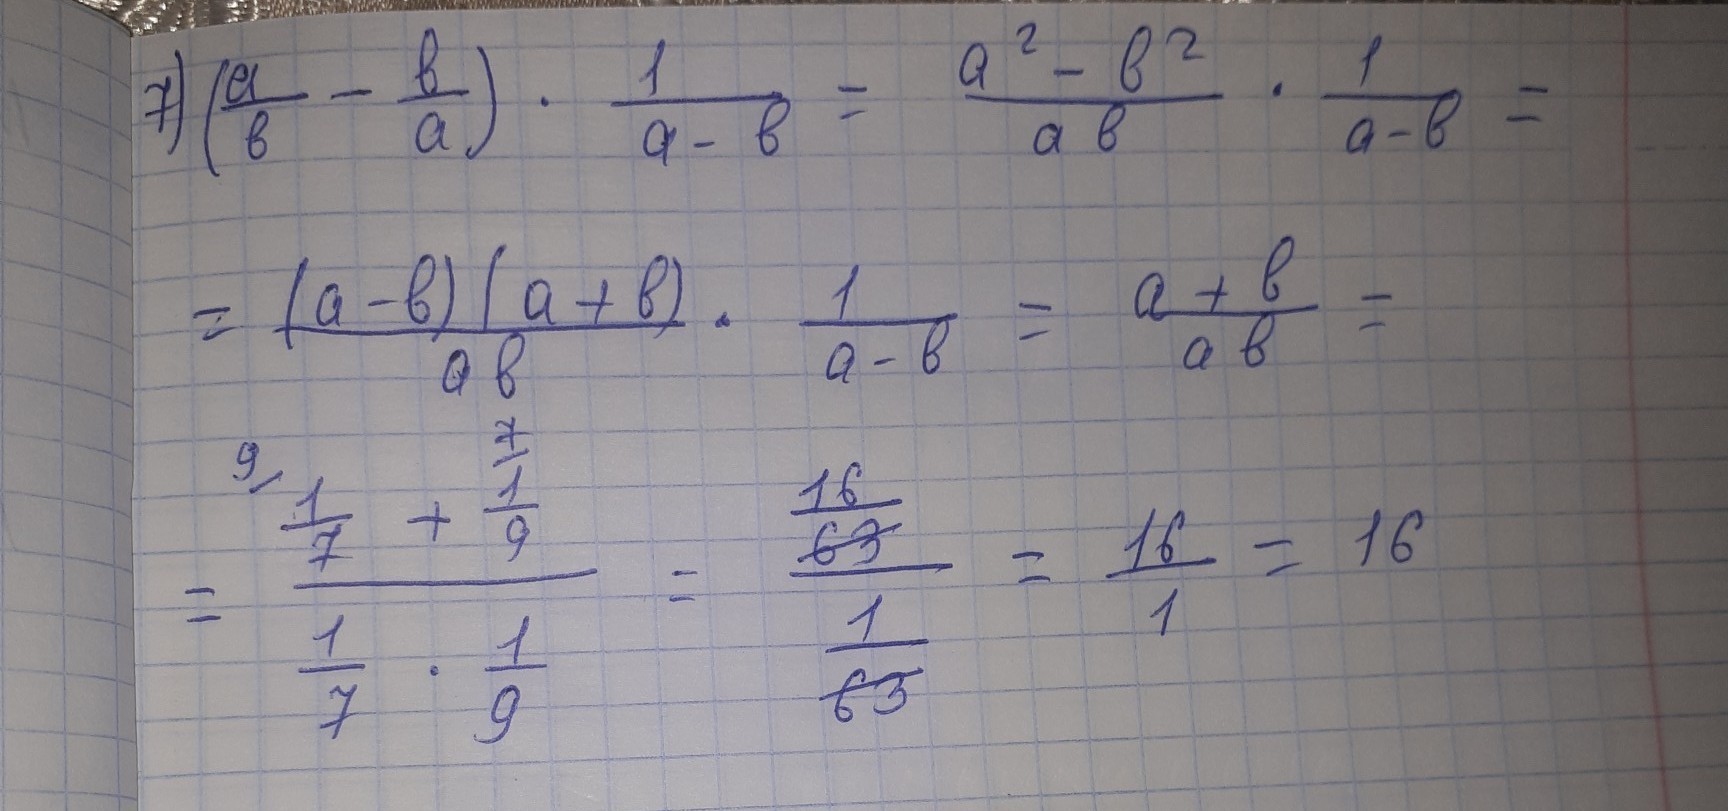 7) (a/в - в/a) · 1/(a - в) = (a² - в²)/(aв) · 1/(a - в) =
= (a - в)(a + в)/(aв) · 1/(a - в) = (a + в)/(aв) =
= (⁹⁄ 1/7 + ⁷⁄ 1/9)/(1/7 · 1/9) = (16/63)/(1/63) = 16/1 = 16